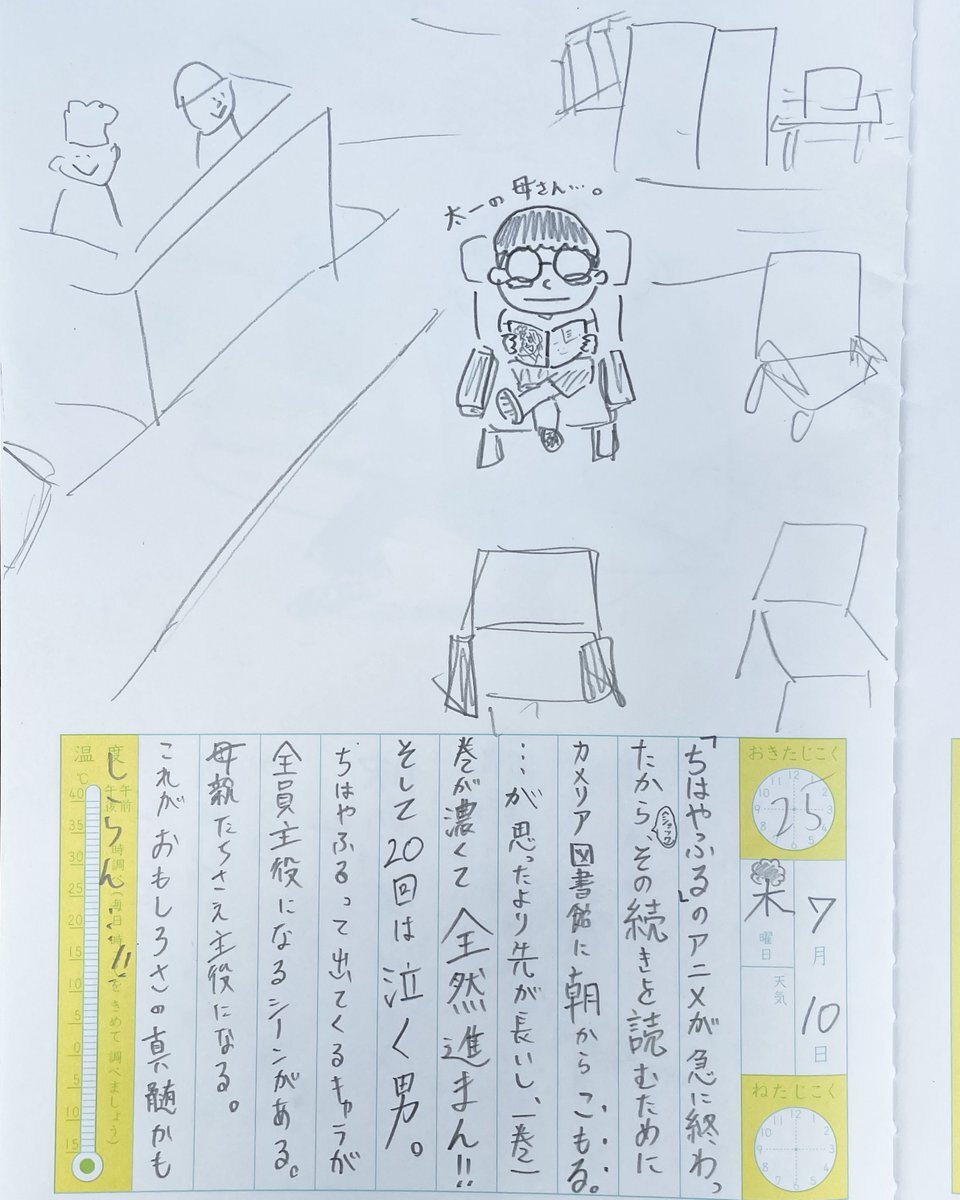 太一の母さん…。
おきたじこく
25
7月10日
木曜日
天気
ねたじこく
「ちはやふる」のアニメが急に終わっ
たから、(ショック)その続きを読むために
カメリア図書館に朝からこもる。
…が思ったより先が長いし、一巻一
巻が濃くて全然進まん!!
そして20回は泣く男。
ちはやふるって出てくるキャラが
全員主役になるシーンがある。
母親たちさえ主役になる。
これがおもしろさの真髄かも
しらん…!!
温度
℃
午前
午後
時調べ(毎日時をきめて調べましょう)
40
35
30
25
20
15
10
5
0
5
10
15